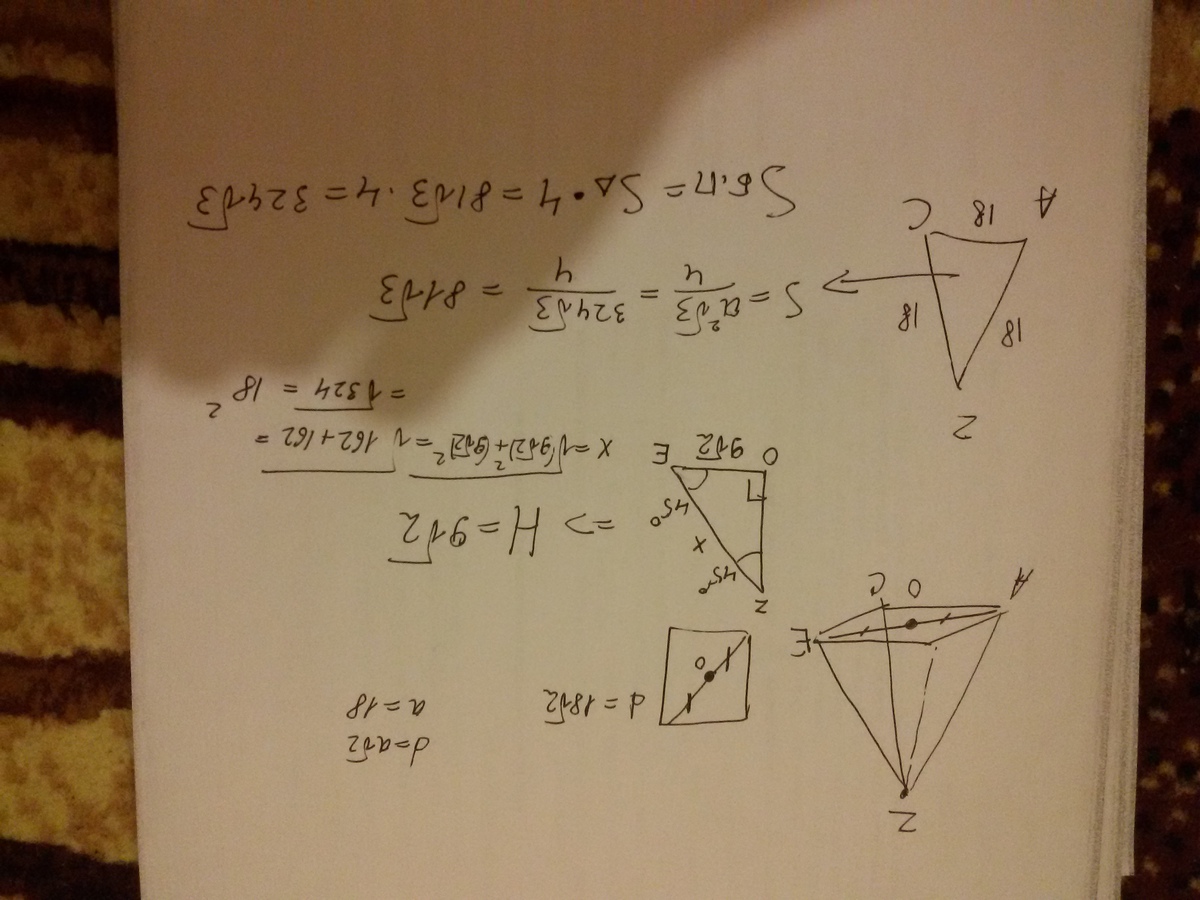 d=a√2
a=18
d=18√2
O
Z
A
O
C
E
Z
45°
x
45°
O
9√2
E
=> H=9√2
x=√(9√2)²+(9√2)² = √162+162 =
= √324 = 18 ²
Z
18
18
A
18
C
S = a²√3/4 = 324√3/4 = 81√3
Sб.п = S△•4 = 81√3·4 = 324√3